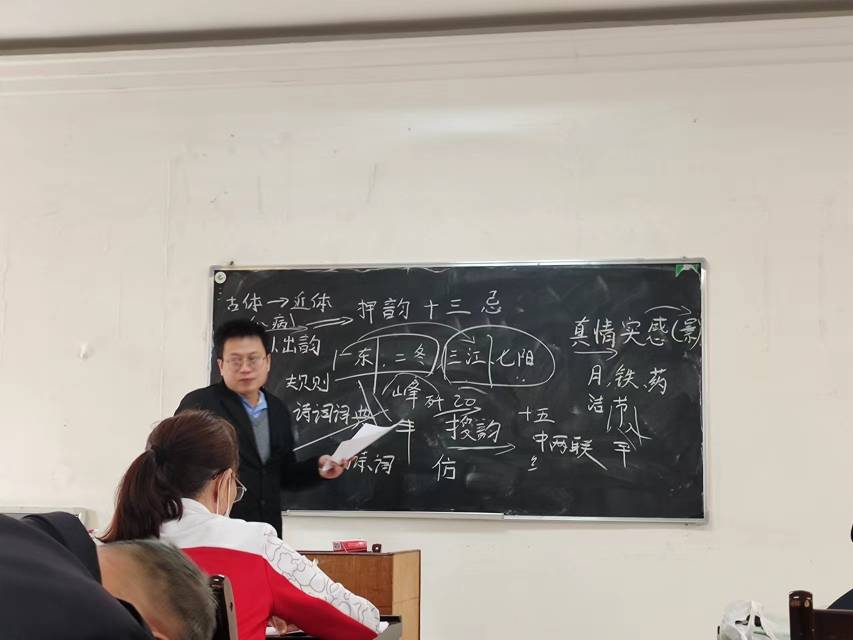 古体→近体 押韵十三忌
病
出韵 一东 二冬 三江 七阳 真情实感(景)
规则 峰 20 月、铁、药
诗词词典 平 按韵 十五 洁 节 入
诗词 仿 中两联 平